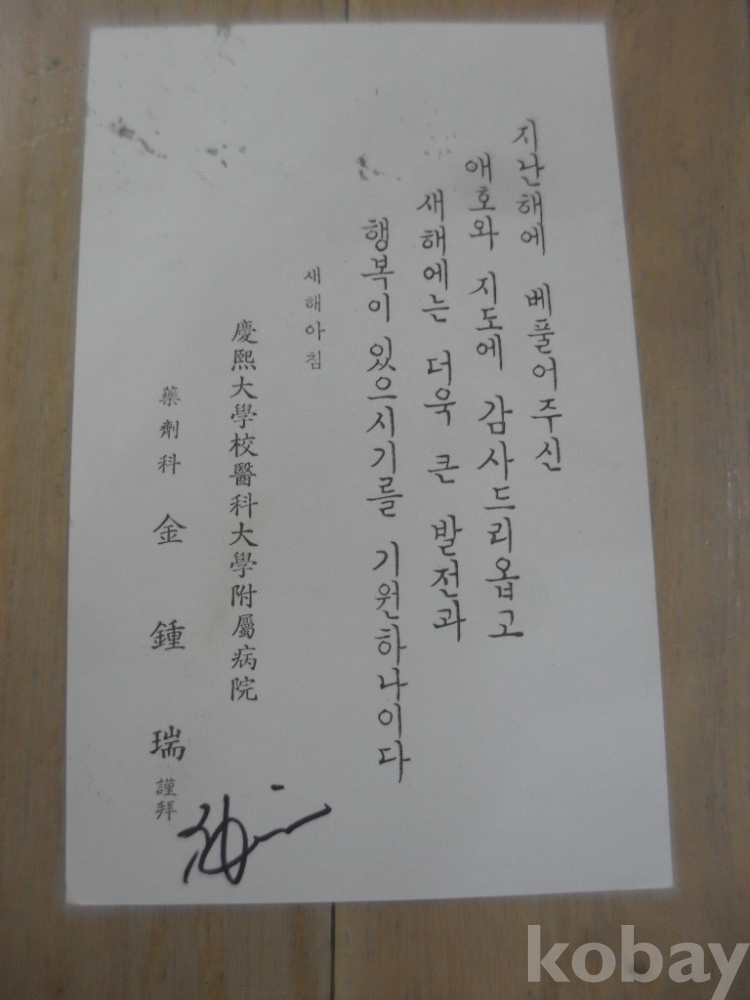 지난해에 베풀어주신
애호와 지도에 감사드리옵고
새해에는 더욱 큰 발전과
행복이 있으시기를 기원하나이다
새해아침
慶熙大學校醫科大學附屬病院
藥劑科 金鍾瑞 謹拜
kobay